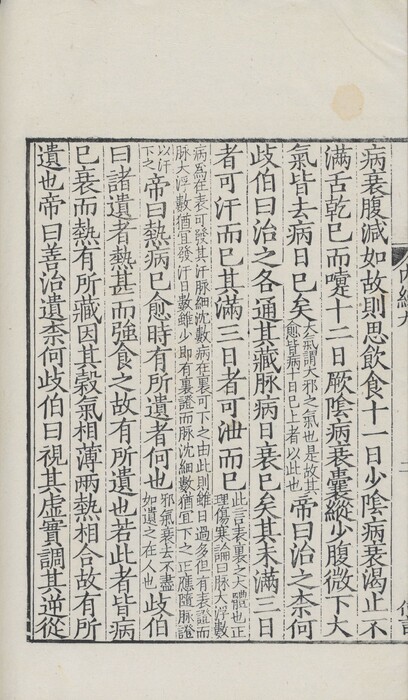 病衰腹減如故則思飲食十一日少陰病衰渴止不
滿舌乾已而嚏十二日厥陰病衰囊縱少腹微下大
氣皆去病日已矣大氣謂大邪之氣也是故其愈皆病十日已上者以此也帝曰治之柰何
歧伯曰治之各通其藏脉病日衰已矣其未滿三日
者可汗而已其滿三日者可泄而已此言表裏之大體也正理傷寒論曰脉大浮數
病為在表可發其汗脉細沈數病在裏可下之由此則雖日過多但有表證而脉大浮數猶宜發汗日數雖少即有裏證而脉沈細數猶宜下之正應隨脉證
以汗下之帝曰熱病已愈時有所遺者何也邪氣衰去不盡如遺之在人也歧伯
曰諸遺者熱甚而強食之故有所遺也若此者皆病
已衰而熱有所藏因其穀氣相薄兩熱相合故有所
遺也帝曰善治遺柰何歧伯曰視其虛實調其逆從